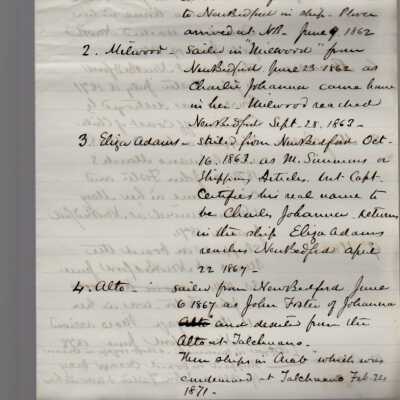 to New Bedford in ship - Plover
arrived at N.B. June 9 1862
2. Milwood - sailed in "Milwood" from
New Bedford June 23 1862 as
Charlie Johanna came home
in her Milwood reached
New Bedford Sept. 28. 1863 -
3 Eliza Adams - sailed from New Bedford Oct-
16. 1863. as M. Simmons on
Shipping Articles. but Capt-
Certifies his real name to
be Charles Johanna. returns
in the ship Eliza Adams
reaches New Bedford april
22 1867 -
4. Alto - sailed from New Bedford June
6 1867 as John Foster of Johanna
Alto and deserted from the
Alto at Talcahuano.
Then ships in "Arab" which was
condemned at Talcahuano Feb. 24
1871 -